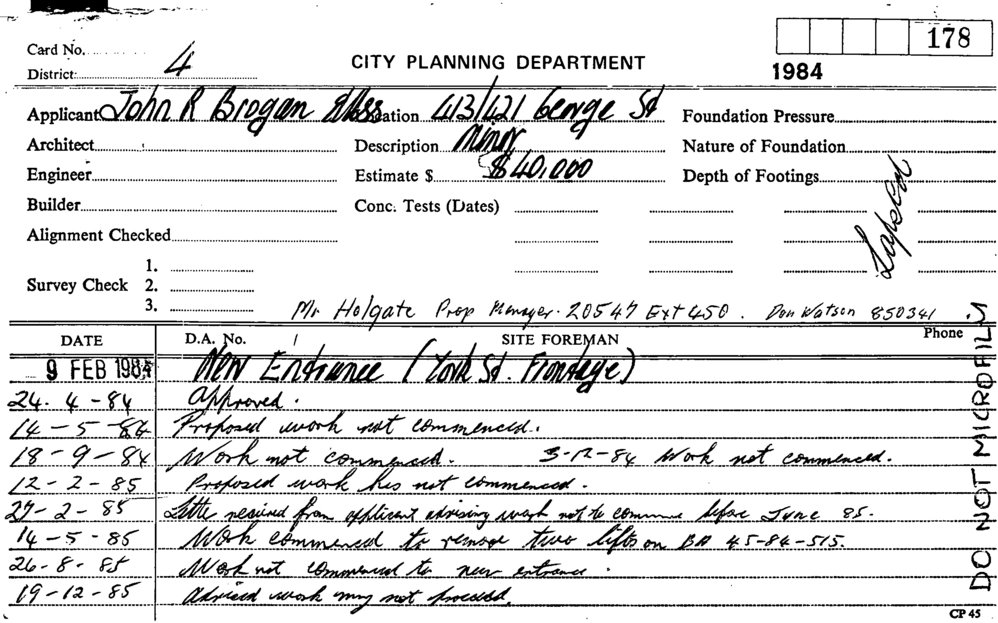 178
Card No. 4
District
CITY PLANNING DEPARTMENT
1984
Applicant John R Brogan & Ass
Location 413/421 George St
Foundation Pressure
Architect
Description Minor
Nature of Foundation
Engineer
Estimate $ $40,000
Depth of Footings
Builder
Conc. Tests (Dates)
Lapsed
Alignment Checked
Survey Check
1.
2.
3.
Mr Holgate Prop Manager. 20547 Ext 450. Don Watson 850341
DATE
D.A. No.
SITE FOREMAN
Phone
9 FEB 1984 New Entrance (York St. Frontage)
24. 4 - 84 Approved.
14 - 5 - 84 Proposed work not commenced.
18 - 9 - 84 Work not commenced. 3-12-84 Work not commenced.
12 - 2 - 85 Proposed work has not commenced.
27 - 2 - 85 Letter received from applicant advising work not to commence before June 85.
14 - 5 - 85 Work commenced to remove two lifts on BA 45-84-515.
26 - 8 - 85 Work not commenced to new entrance.
19-12-85 Advised work may not proceed.
DO NOT MICROFILM
CP 45